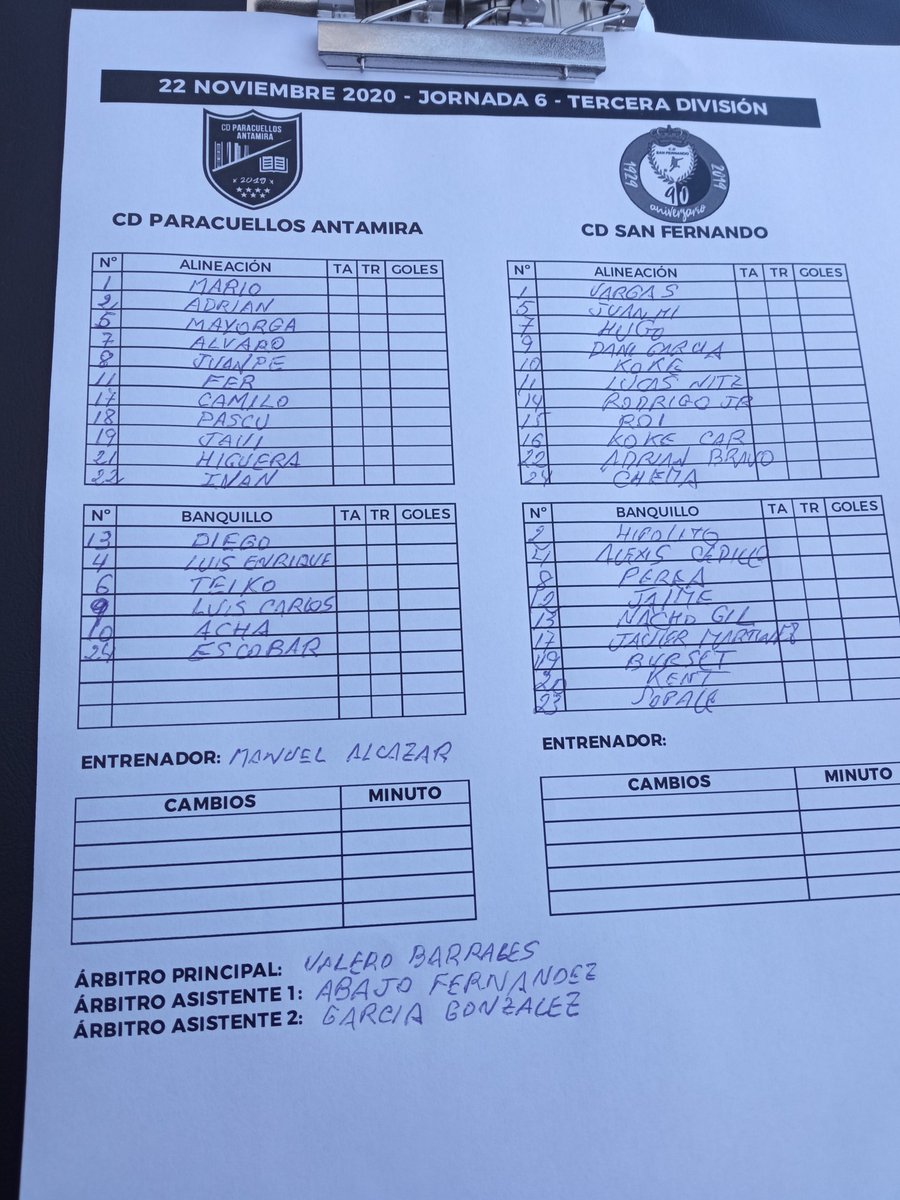 22 NOVIEMBRE 2020 - JORNADA 6 - TERCERA DIVISIÓN
CD PARACUELLOS
ANTAMIRA
2019
CD PARACUELLOS ANTAMIRA
Nº ALINEACIÓN TA TR GOLES
1 MARIO
2 ADRIAN
5 MAYORGA
7 ALVARO
8 JUANPE
11 FER
17 CAMILO
18 PASCU
19 JAVI
21 HIGUERA
22 IVAN
Nº BANQUILLO TA TR GOLES
13 DIEGO
4 LUIS ENRIQUE
6 TEIKO
9 LUIS CARLOS
10 ACHA
24 ESCOBAR
ENTRENADOR: MANUEL ALCAZAR
CAMBIOS MINUTO
CD
SAN FERNANDO
1929 2019
90
aniversario
CD SAN FERNANDO
Nº ALINEACIÓN TA TR GOLES
1 VARGAS
5 JUANMI
7 HUGO
9 DANI GARCIA
10 KOKE
11 LUCAS NITZ
14 RODRIGO JR
15 ROI
16 KOKE CAR
22 ADRIAN BRAVO
24 CHEMA
Nº BANQUILLO TA TR GOLES
2 HIPOLITO
4 ALEXIS CEDILLO
8 PEREA
12 JAIME
13 NACHO GIL
17 JAVIER MARTINEZ
19 BURSET
KENT
23 JOPALE
ENTRENADOR:
CAMBIOS MINUTO
ÁRBITRO PRINCIPAL: VALERO BARRALES
ÁRBITRO ASISTENTE 1: ABAJO FERNANDEZ
ÁRBITRO ASISTENTE 2: GARCIA GONZALEZ